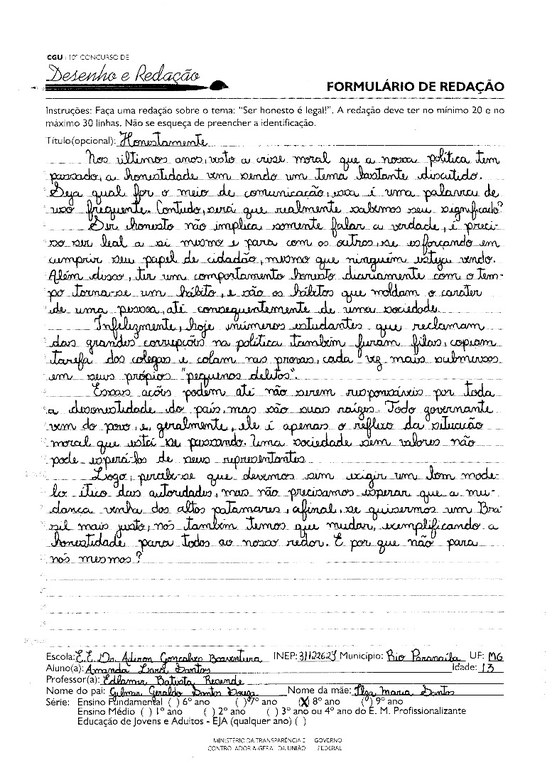 CGU - 10º CONCURSO DE
Desenho e Redação
FORMULÁRIO DE REDAÇÃO
Instruções: Faça uma redação sobre o tema: "Ser honesto é legal!". A redação deve ter no mínimo 20 e no
máximo 30 linhas. Não se esqueça de preencher a identificação.
Título(opcional): Honestamente
Nos últimos anos, visto a crise moral que a nossa política tem
passado, a honestidade vem sendo um tema bastante discutido.
Seja qual for o meio de comunicação, essa é uma palavra de
uso frequente. Contudo, será que realmente sabemos seu significado?
Ser honesto não implica somente falar a verdade, é preci-
so ser leal a si mesmo e para com os outros, se esforçando em
cumprir seu papel de cidadão, mesmo que ninguém esteja vendo.
Além disso, ter um comportamento honesto diariamente com o tem-
po torna-se um hábito, e são os hábitos que moldam o caráter
de uma pessoa, até consequentemente de uma sociedade.
Infelizmente, hoje inúmeros estudantes que reclamam
das grandes corrupções na política também furam filas, copiam
tarefa dos colegas e colam nas provas, cada vez mais submersos
em seus próprios "pequenos delitos".
Essas ações podem até não serem responsáveis por toda
a desonestidade do país, mas são suas raízes. Todo governante
vem do povo, e, geralmente, ele é apenas o reflexo da situação
moral que está se passando. Uma sociedade sem valores não
pode esperá-los de seus representantes
Logo, percebe-se que devemos sim exigir um bom mode-
lo ético das autoridades, mas não precisamos esperar que a mu-
dança venha dos altos patamares, afinal, se quisermos um Bra-
sil mais justo, nós também temos que mudar, exemplificando a
honestidade para todos ao nosso redor. E por que não para
nós mesmos?
Escola: E.E. Dr. Adiron Gonçalves Boaventura INEP: 31122629 Município: Rio Paranaíba UF: MG
Aluno(a): Amanda Santos Idade: 13
Professor(a): Edlamar Batista Rezende
Nome do pai: Gilmar Geraldo Santos Nome da mãe: Maria Santos
Série: Ensino Fundamental ( ) 6º ano ( ) 7º ano (X) 8º ano ( ) 9º ano
Ensino Médio ( ) 1º ano ( ) 2º ano ( ) 3º ano ou 4º ano do E. M. Profissionalizante
Educação de Jovens e Adultos - EJA (qualquer ano) ( )
MINISTÉRIO DA TRANSPARÊNCIA E GOVERNO
CONTROLADORIA-GERAL DA UNIÃO FEDERAL